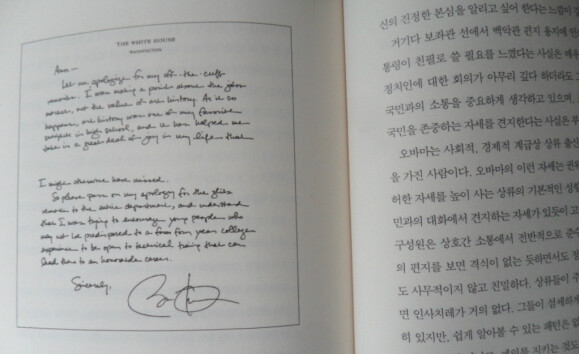 THE WHITE HOUSE
WASHINGTON
Ann —
Let me apologize for my off-the-cuff
remarks. I was making a point about the jobs
market, not the value of art history. As it so
happens, art history was one of my favorite
subjects in high school, and it has helped me
take in a great deal of joy in my life that
I might otherwise have missed.
So please pass on my apology for the glib
remark to the entire department, and understand
that I was trying to encourage young people who
may not be predisposed to a four year college
experience to be open to technical training that can
lead them to an honorable career.
Sincerely,
신의 진정한 본심을 알리고 싶어 한다는 느낌이
거기다 보좌관 선에서 백악관 편지 용지에
통령이 친필로 쓸 필요를 느꼈다는 사실은
정치인에 대한 회의가 아무리 깊다 하더라도
국민과의 소통을 중요하게 생각하고 있으며,
국민을 존중하는 자세를 견지한다는 사실은
오바마는 사회적, 경제적 계급상 상류 출신
을 가진 사람이다. 오바마의 이런 자세는
허한 자세를 높이 사는 상류의 기본적인
민과의 대화에서 견지하는 자세가 있듯이
구성원은 상호간 소통에서 전반적으로
의 편지를 보면 격식이 없는 듯하면서도
도 사무적이지 않고 친밀하다. 상류들이
면 인사치레가 거의 없다. 그들이 섬세하게
히 있지만, 쉽게 알아볼 수 있는 패턴은